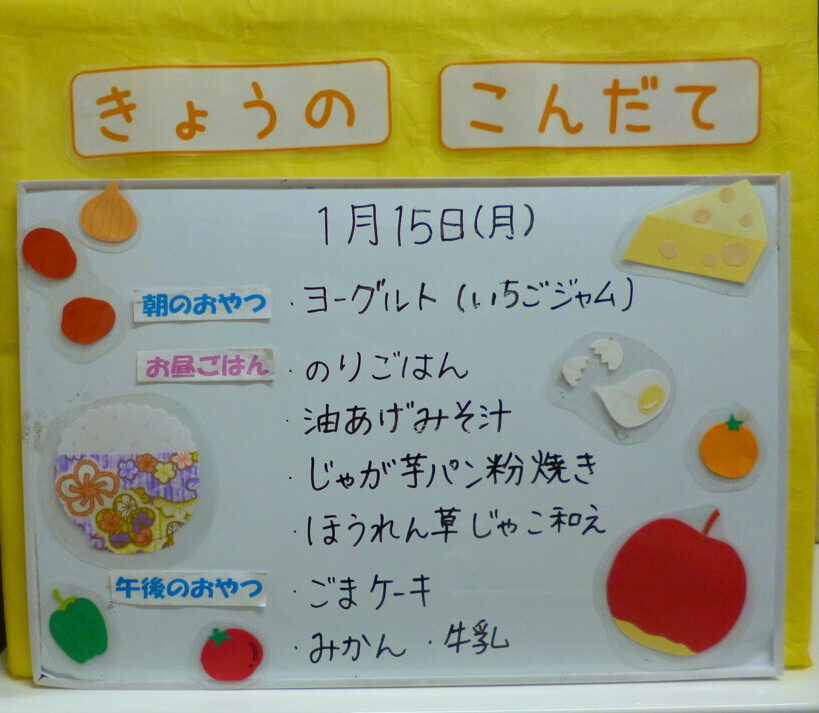 きょうの こんだて
1月15日(月)
朝のおやつ ・ヨーグルト(いちごジャム)
お昼ごはん ・のりごはん
・油あげみそ汁
・じゃが芋パン粉焼き
・ほうれん草じゃこ和え
午後のおやつ ・ごまケーキ
・みかん ・牛乳